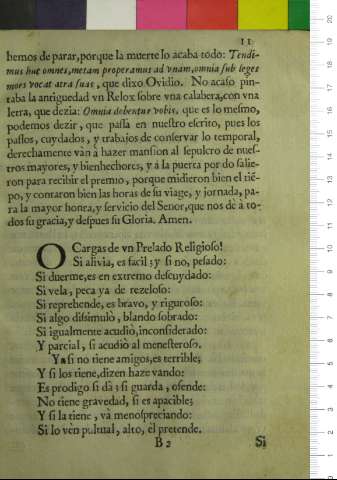 11
hemos de parar, porque la muerte lo acaba todo: Tendi-
mus huc omnes, metam properamus ad vnam, omnia sub leges
mors vocat atra suas, que dixo Ovidio. No acaso pin-
taba la antiguedad vn Relox sobre vna calabera, con vna
letra, que dezia: Omnia debentur vobis, que es lo mesmo,
podemos dezir, que passa en nuestro escrito, pues los
passos, cuydados, y trabajos de conservar lo temporal,
derechamente van à hazer mansion al sepulcro de nues-
tros mayores, y bienhechores, y à la puerta por do salie-
ron para recibir el premio, porque midieron bien el tiē-
po, y contaron bien las horas de su viage, y jornada, pa-
ra la mayor honra, y servicio del Señor, que nos dè à to-
dos su gracia, y despues su Gloria. Amen.
O Cargas de vn Prelado Religioso!
Si alivia, es facil; y si no, pesado:
Si duerme, es en extremo descuydado:
Si vela, peca ya de rezeloso:
Si reprehende, es bravo, y riguroso:
Si algo dissimulò, blando sobrado:
Si igualmente acudiò, inconsiderado:
Y parcial, si acudiò al menesteroso.
Ya si no tiene amigos, es terrible;
Y si los tiene, dizen haze vando:
Es prodigo si dà; si guarda, ofende:
No tiene gravedad, si es apacible;
Y si la tiene, và menospreciando:
Si lo vèn puntual, alto, èl pretende.
B 2
Si